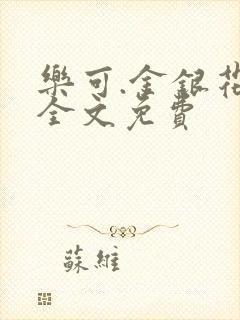 樂可.金銀花
全文免費
蘇維